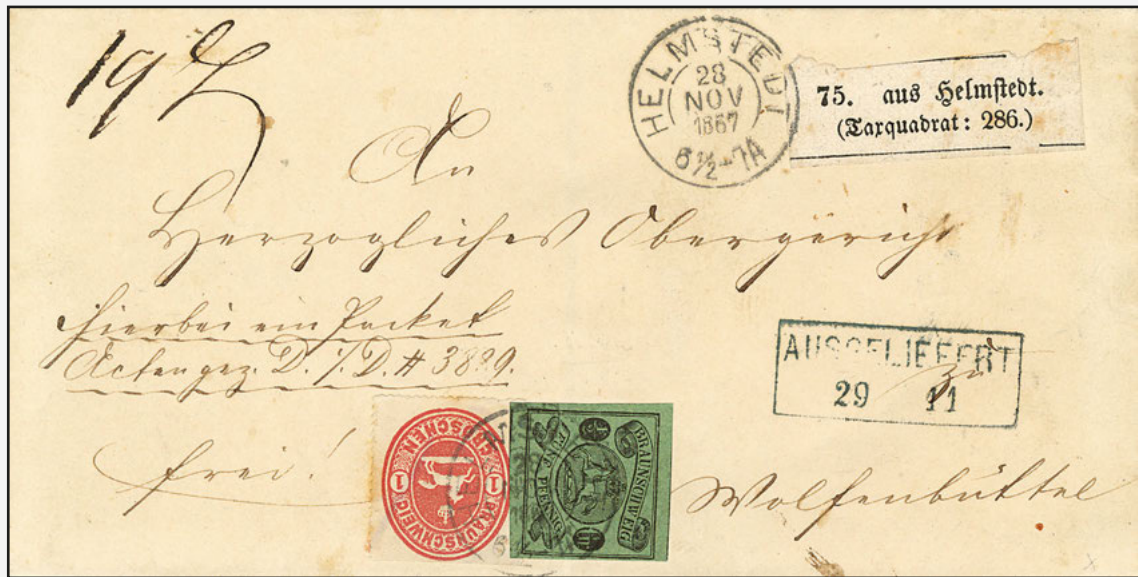 HELMSTEDT
28
NOV
1867
6½-7A
75. aus Helmstedt.
(Taxquadrat: 286.)
An
Herzogliches Obergericht
hierbei ein Packet
Acten gez. D. /. D. # 3889.
AUSGELIEFERT
29 11
zu
frei!
Wolfenbüttel
BRAUNSCHWEIG
1 GROSCHEN 1
BRAUNSCHWEIG
PFENNIG